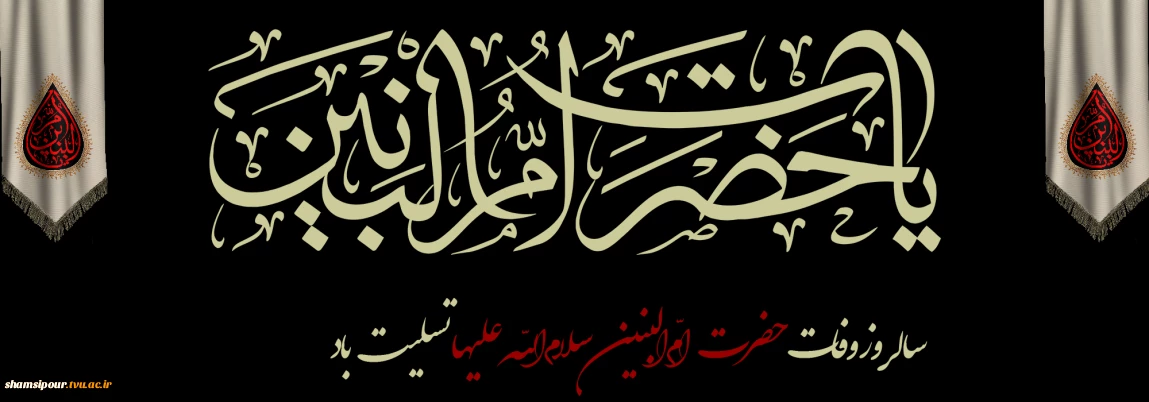 یا حضرت ام البنین
سالروز وفات حضرت امّ البنین سلام الله علیها تسلیت باد
ام البنین
ام البنین
shamsipour.tvu.ac.ir